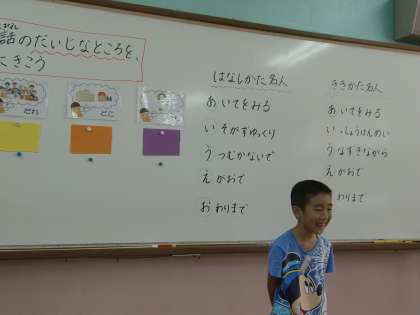 はなし
話のだいじなところを、
にきこう
だれ
どこ
はなしかた名人
あいてをみる
いそがずゆっくり
うつむかないで
えがおで
おわりまで
ききかた名人
あいてをみる
いっしょうけんめい
うなずきながら
えがおで
わりまで